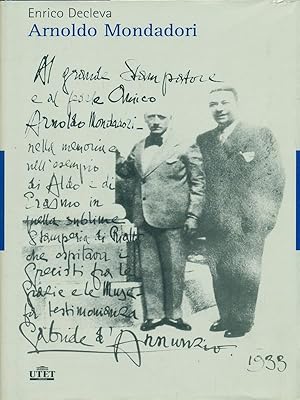 Enrico Decleva
Arnoldo Mondadori
Al grande Stampatore
e al fedele Amico
Arnoldo Mondadori
nella memoria e
nell'esempio
di Aldo e di
Erasmo in
quella sublime
Stamperia di Rialto
che ospitava i
Grecisti fra le
Grazie e le Muse
per testimonianza
Gabriele d'Annunzio.
1933
UTET